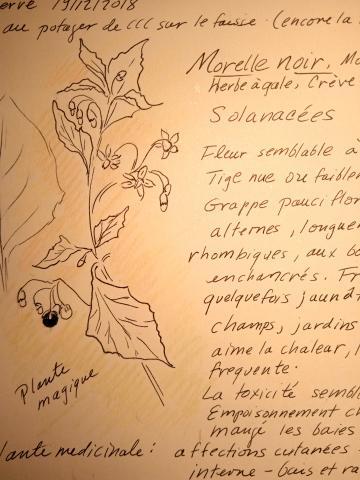 erve 19/12/2018
au potager de CCC sur le faisse. (encore la
Morelle noir, Mo
Herbe à gale, Crève
Solanacées
Fleur semblable à
Tige nue ou faiblem
Grappe pauciflor
alternes, longuem
rhombiques, aux bo
enchancrés. Fr
quelquefois jaund
champs, jardins
aime la chaleur, l
fréquente.
Plante
magique
La toxicité sembl
Empoisonnement ch
mangé les baies
lante medicinale: affections cutanées -
interne - baies et ra